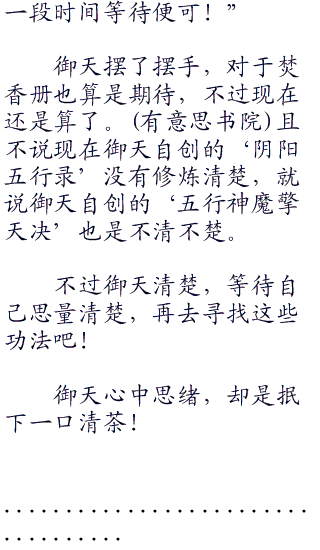 一段时间等待便可！”
御天摆了摆手，对于焚
香册也算是期待，不过现在
还是算了。(有意思书院)且
不说现在御天自创的‘阴阳
五行录’没有修炼清楚，就
说御天自创的‘五行神魔擎
天决’也是不清不楚。
不过御天清楚，等待自
己思量清楚，再去寻找这些
功法吧！
御天心中思绪，却是抿
下一口清茶！
．．．．．．．．．．．．．．．．．．．．．．．．．
．．．．．．．．．．